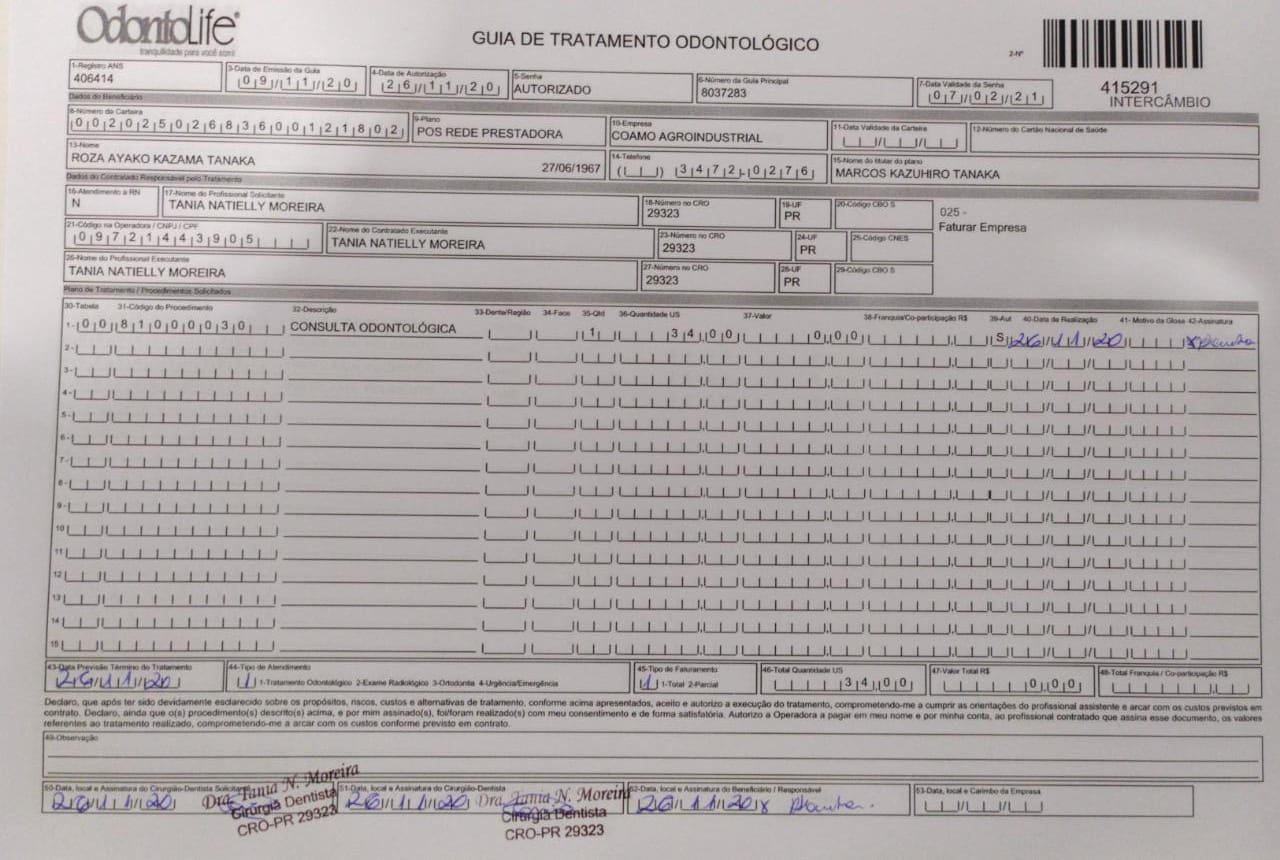 OdontoLife
tranquilidade para você sorrir
GUIA DE TRATAMENTO ODONTOLÓGICO
2-Nº
415291
INTERCÂMBIO
1-Registro ANS
406414
3-Data de Emissão da Guia
09/11/20
4-Data de Autorização
26/11/20
5-Senha
AUTORIZADO
6-Número da Guia Principal
8037283
7-Data Validade da Senha
07/02/21
Dados do Beneficiário
8-Número da Carteira
00202502683600121802
9-Plano
POS REDE PRESTADORA
10-Empresa
COAMO AGROINDUSTRIAL
11-Data Validade da Carteira
12-Número do Cartão Nacional de Saúde
13-Nome
ROZA AYAKO KAZAMA TANAKA 27/06/1967
14-Telefone
( ) 3472-0276
15-Nome do titular do plano
MARCOS KAZUHIRO TANAKA
Dados do Contratado Responsável pelo Tratamento
16-Atendimento a RN
N
17-Nome do Profissional Solicitante
TANIA NATIELLY MOREIRA
18-Número no CRO
29323
19-UF
PR
20-Código CBO S
025 -
Faturar Empresa
21-Código na Operadora / CNPJ / CPF
09721443905
22-Nome do Contratado Executante
TANIA NATIELLY MOREIRA
23-Número no CRO
29323
24-UF
PR
25-Código CNES
26-Nome do Profissional Executante
TANIA NATIELLY MOREIRA
27-Número no CRO
29323
28-UF
PR
29-Código CBO S
Plano de Tratamento / Procedimentos Solicitados
30-Tabela 31-Código do Procedimento 32-Descrição 33-Dente/Região 34-Face 35-Qtd 36-Quantidade US 37-Valor 38-Franquia/Co-participação R$ 39-Aut 40-Data de Realização 41- Motivo da Glosa 42-Assinatura
1- 00 81000030 CONSULTA ODONTOLÓGICA 1 34,00 0,00 S 26/11/20
2-
3-
4-
5-
6-
7-
8-
9-
10
11
12
13
14
15
43-Data Previsão Término do Tratamento
26/11/20
44-Tipo de Atendimento
1 1-Tratamento Odontológico 2-Exame Radiológico 3-Ortodontia 4-Urgência/Emergência
45-Tipo de Faturamento
1 1-Total 2-Parcial
46-Total Quantidade US
34,00
47-Valor Total R$
0,00
48-Total Franquia / Co-participação R$
Declaro, que após ter sido devidamente esclarecido sobre os propósitos, riscos, custos e alternativas de tratamento, conforme acima apresentados, aceito e autorizo a execução do tratamento, comprometendo-me a cumprir as orientações do profissional assistente e arcar com os custos previstos em
contrato. Declaro, ainda que o(s) procedimento(s) descrito(s) acima, e por mim assinado(s), foi/foram realizado(s) com meu consentimento e de forma satisfatória. Autorizo a Operadora a pagar em meu nome e por minha conta, ao profissional contratado que assina esse documento, os valores
referentes ao tratamento realizado, comprometendo-me a arcar com os custos conforme previsto em contrato.
49-Observação
50-Data, local e Assinatura do Cirurgião-Dentista Solicitante
26/11/20
Dra. Tania N. Moreira
Cirurgiã Dentista
CRO-PR 29323
51-Data, local e Assinatura do Cirurgião-Dentista
26/11/20
Dra. Tania N. Moreira
Cirurgiã Dentista
CRO-PR 29323
52-Data, local e Assinatura do Beneficiário / Responsável
26/11/20 x
53-Data, local e Carimbo da Empresa